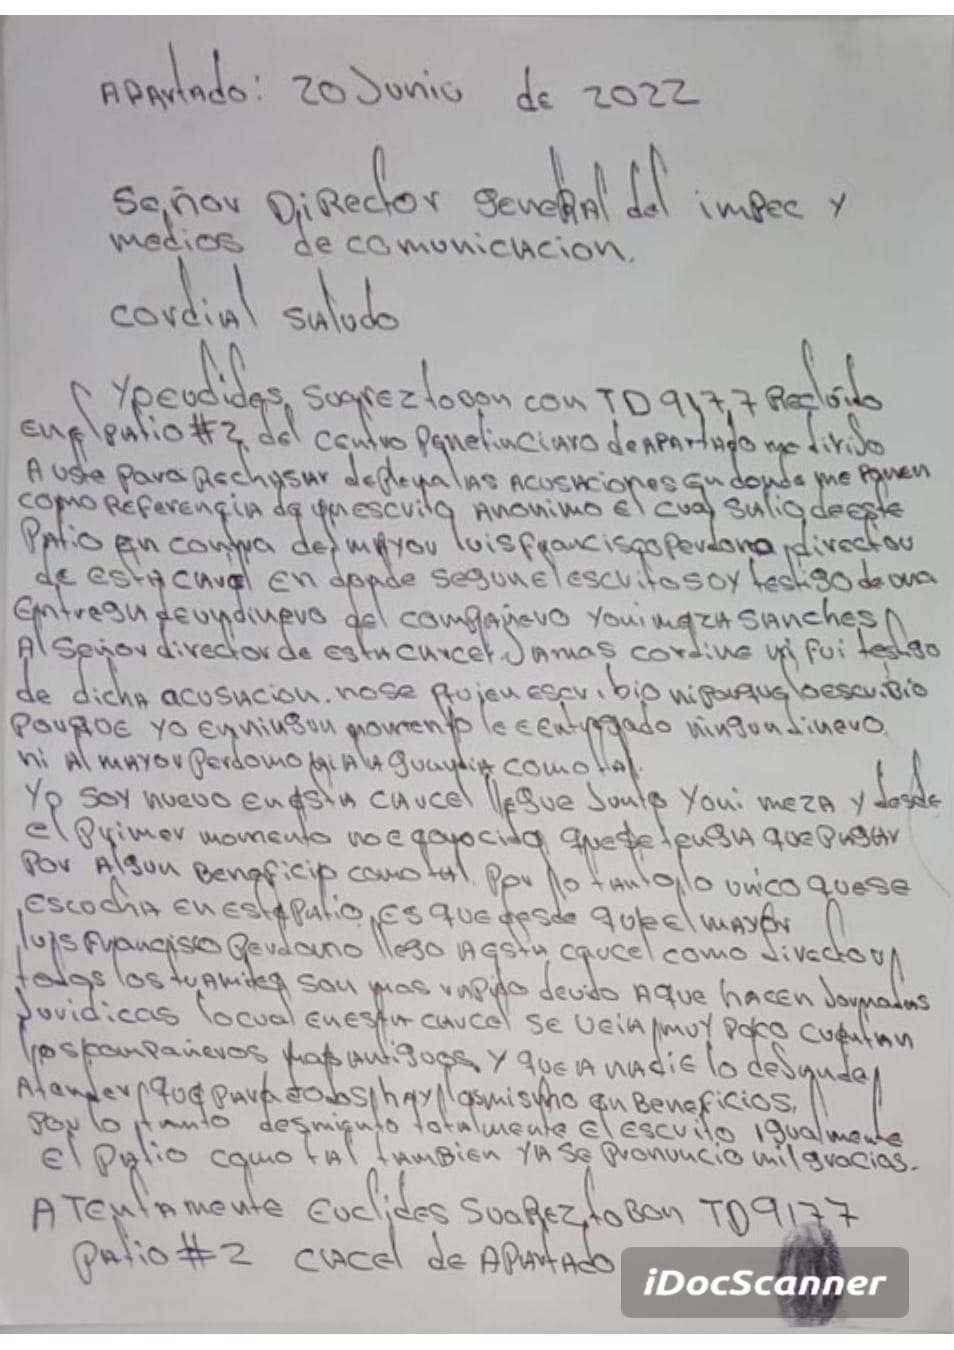 APArtado: 20 Junio de 2022
Señor DiRector geneRAl del impec y
medios de comunicacion.
cordial saludo
Suarez tobon con TD 9177 Recluido
en el patio #2 del centro Penetinciaro de APARtado me dirijo
A uste para Rechasar de plena lAS ACusAciones en donde me ponen
como Referencia de un escrito Anonimo el cual salio de este
Patio en contra del mayor luis francisco perdomo, director
de esta carcel en donde segun el escrito soy testigo de una
entrega de un dinero del compañero Youi meza Sanches
Al Señor director de esta carcel. Jamas cordine ni fui testigo
de dicha acusacion. nose quien escribio ni porque lo escribio
porque yo en ningun momento le e entregado ningun dinero
ni Al mayor perdomo ni A la guardia como tal.
Yo soy nuevo en esta carcel llegue Junto Youi meza y desde
el primer momento no e conocido que se tenga que pagar
por Algun Beneficio como tal. Por lo tanto, lo unico que se
escocha en este patio, es que desde que el mayor
luis francisco perdomo llego A esta carcel como director
todos los tramites son mas rapido devido A que hacen Jornadas
Juridicas lo cual en esta carcel se veia muy poco cuentan
los compañeros mas antiguos y que A nadie lo desanda
Atender que para todos hay lo mismo en Beneficios.
Por lo tanto desmiento totalmente el escrito igualmente
el patio como tal tambien ya se pronuncio mil gracias.
ATentamente Euclides Suarez toBon TD 9177
Patio #2 cacel de APArtado
iDocScanner